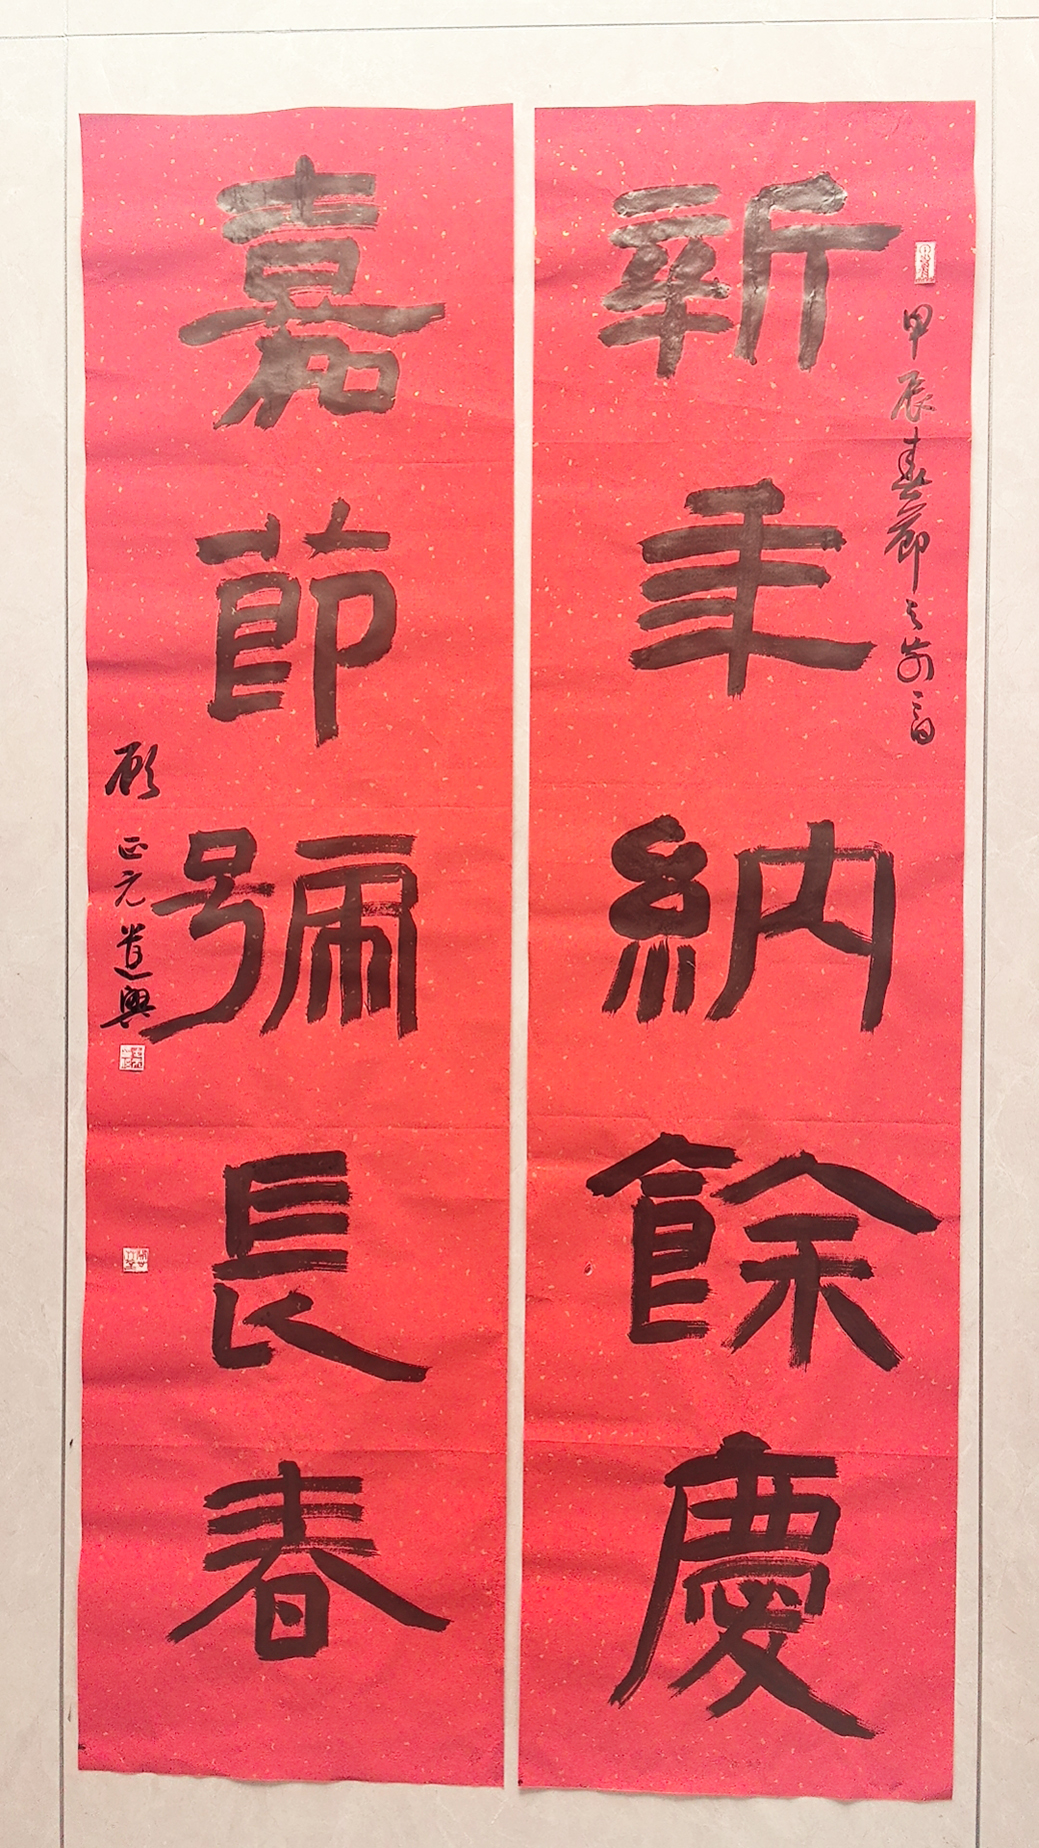 新年納餘慶
嘉節號長春
甲辰春節之前一日
顧正元道興